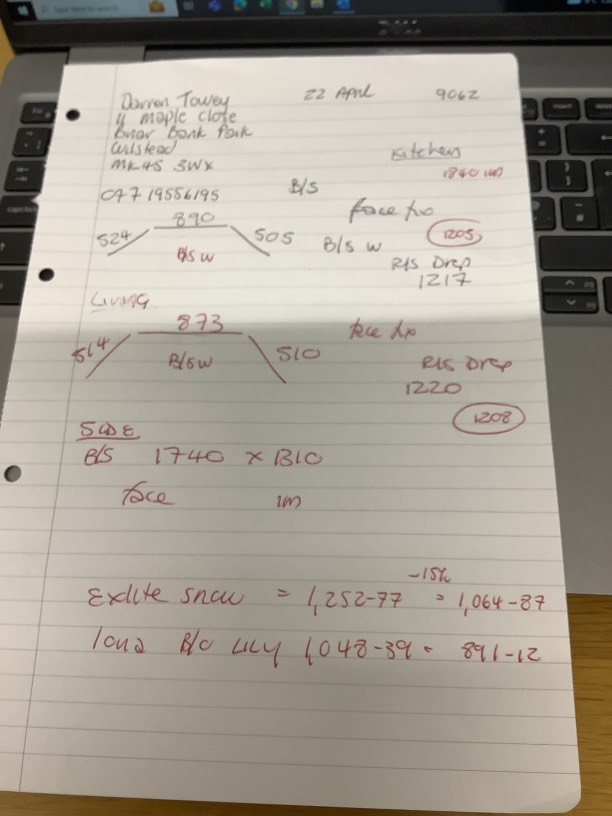 Darren Towey 22 April 9062
11 Maple Close
Briar Bank Park
Wilstead
MK45 3WX
Kitchen
1840 im
07719556195 B/S
face fix
890
524 505
B/S W
B/S W
1205
R/S Drop
1217
Living
873
514 510
B/S W
face fix
R/S Drop
1220
1208
SIDE
B/S 1740 x 1310
face im
-15%
Exlite snow = 1,252-77 = 1,064-87
1,048-39 = 891-12